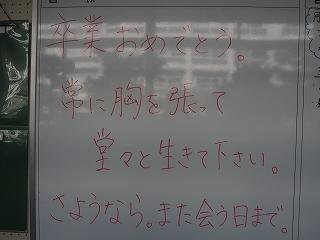 卒業おめでとう。
常に胸を張って
堂々と生きて下さい。
さようなら。また会う日まで。